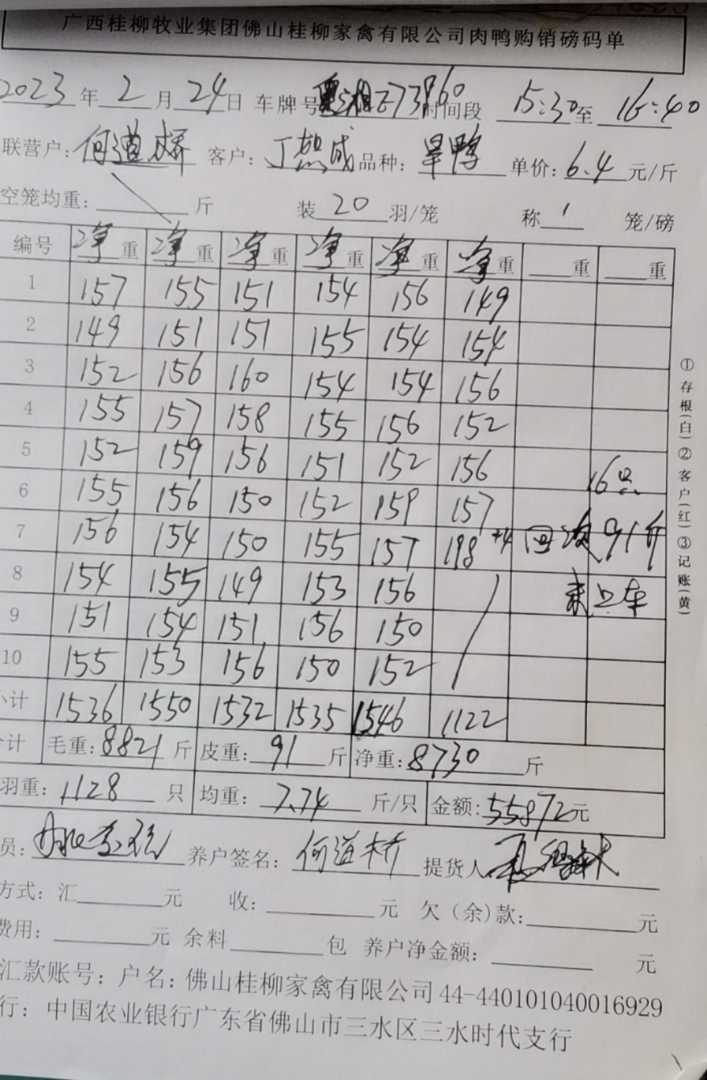 广西桂柳牧业集团佛山桂柳家禽有限公司肉鸭购销磅码单
2023年2月24日 车牌号 73860 时间段 15:30至16:40
联营户:何道桥 客户:丁想成 品种:旱鸭 单价:6.4元/斤
空笼均重: 斤 装20羽/笼 称1笼/磅
编号 净重 净重 净重 净重 净重 净重 重 重
1 157 155 151 154 156 149
2 149 151 151 155 154 154
3 152 156 160 154 154 156
4 155 157 158 155 156 152
5 152 159 156 151 152 156
16只
6 155 156 150 152 159 157
7 156 154 150 155 157 198 +4 回 91斤
8 154 155 149 153 156 未上车
9 151 154 151 156 150
10 155 153 156 150 152
小计 1536 1550 1532 1535 1546 1122
计 毛重:8821斤 皮重:91斤 净重:8730斤
羽重:1128只 均重:7.74斤/只 金额:55872元
员: 养户签名:何道桥 提货人
方式:汇 元 收: 元 欠(余)款: 元
费用: 元 余料 包 养户净金额: 元
汇款账号:户名:佛山桂柳家禽有限公司 44-440101040016929
行:中国农业银行广东省佛山市三水区三水时代支行
①存根(白)②客户(红)③记账(黄)